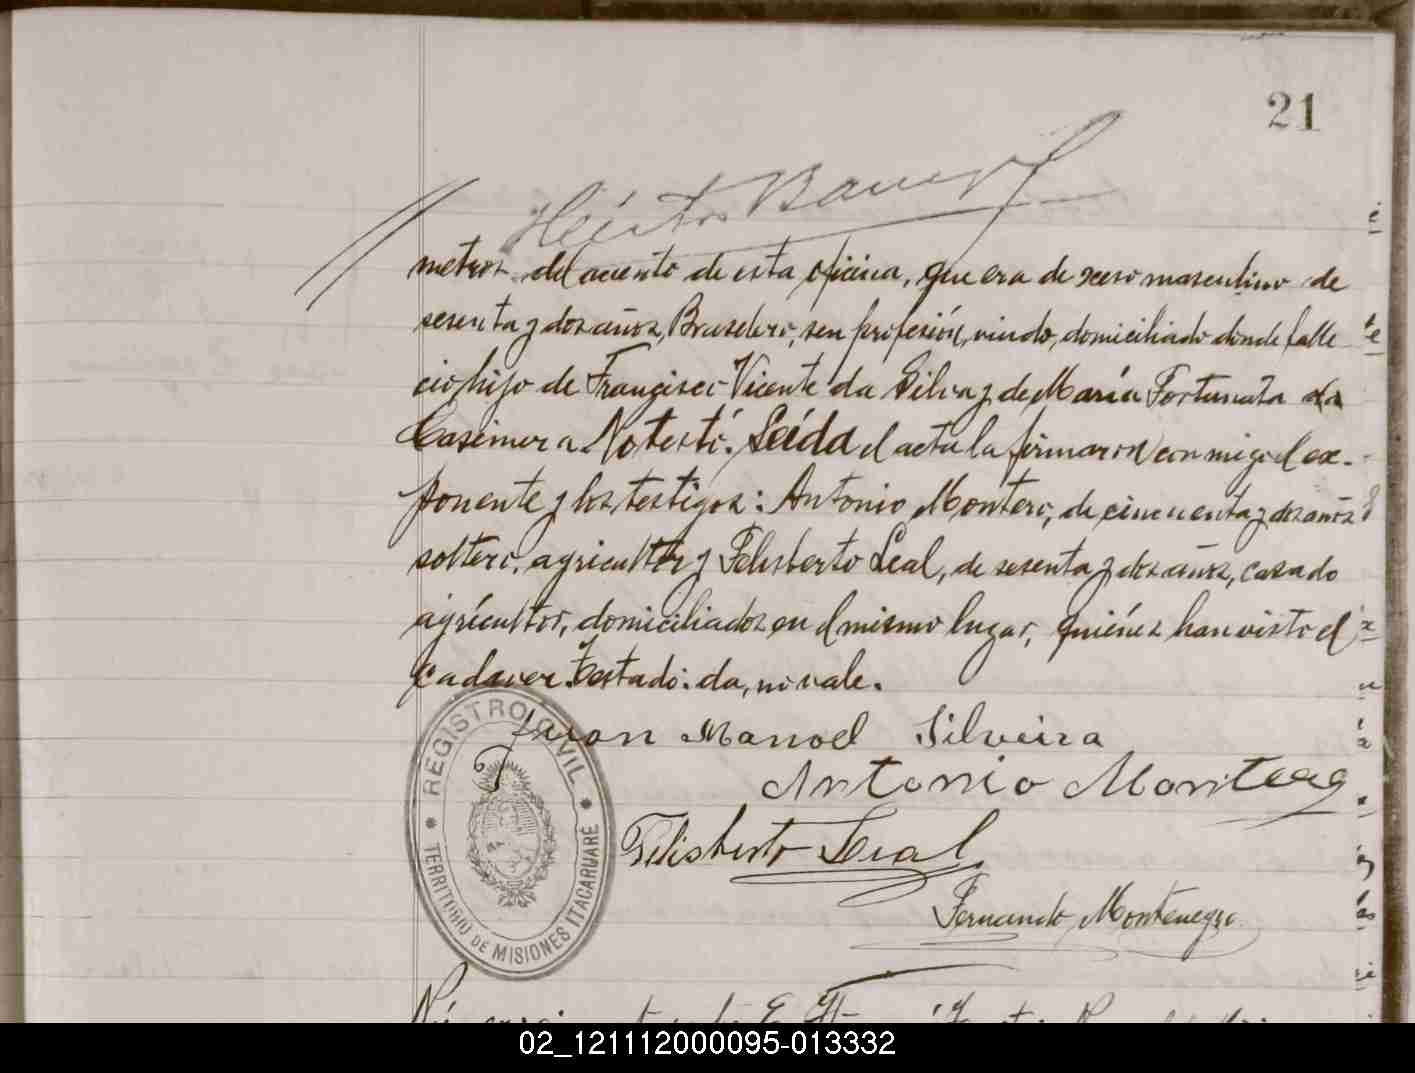 21
Héctor
metros del aciento de esta oficina, que era de sexo masculino de
sesenta y dos años, Brasilero, sin profesión, viudo, domiciliado donde falle
cio hijo de Francisco Vicente da Silva y de María Fortunata da
Casimera. No testó. Leída el acta la firmaron conmigo el ex-
ponente y los testigos: Antonio Montero, de cincuenta y dos años
soltero, agricultor y Felisberto Leal, de sesenta y dos años, casado
agricultor, domiciliados en el mismo lugar, quiénes han visto el
cadaver. Testado: da, no vale.
Juan Manoel Silveira
Antonio
Felisberto Leal
Fernando Montenegro
REGISTRO CIVIL
TERRITORIO DE MISIONES ITACARUARÉ
02_121112000095-013332